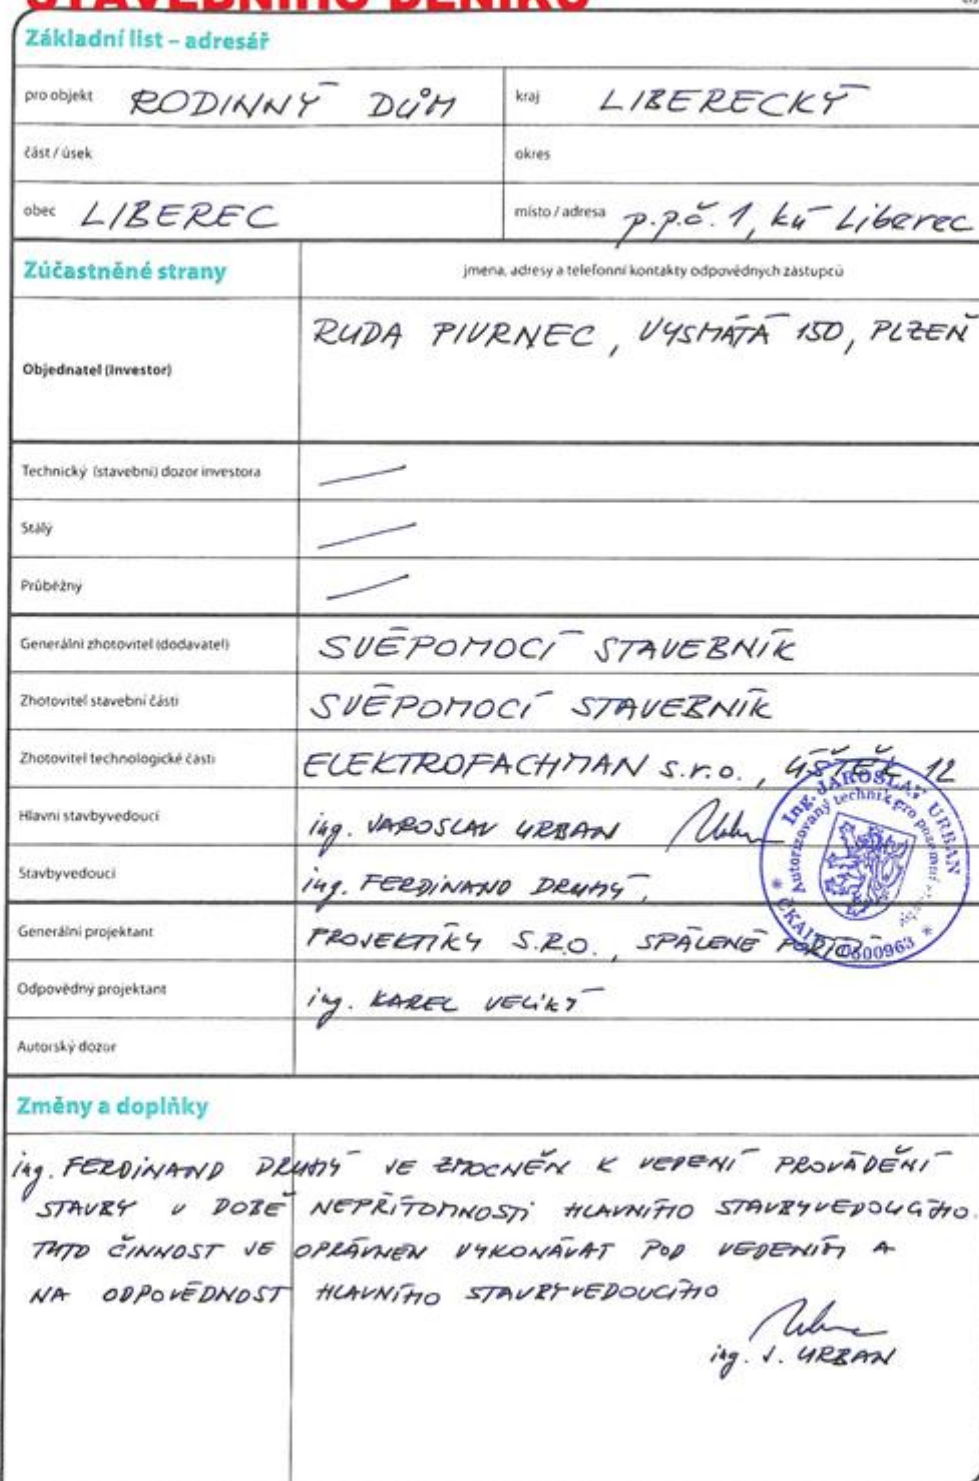 STAVEBNÍHO DENÍKU
Základní list – adresář
pro objekt RODINNÝ DŮM kraj LIBERECKÝ
část / úsek okres
obec LIBEREC místo / adresa p.p.č. 1, kú Liberec
Zúčastněné strany jmena, adresy a telefonní kontakty odpovědných zástupců
Objednatel (Investor) RUDA PIVRNEC, VYSMÁTÁ 150, PLZEŇ
Technický (stavební) dozor investora
Stálý
Průběžný
Generální zhotovitel (dodavatel) SVĚPOMOCÍ STAVEBNÍK
Zhotovitel stavební části SVĚPOMOCÍ STAVEBNÍK
Zhotovitel technologické části ELEKTROFACHMAN s.r.o., ÚŠTĚK 12
Hlavní stavbyvedoucí ing. JAROSLAV URBAN
Stavbyvedoucí ing. FERDINAND DRUHÝ,
Ing. JAROSLAV URBAN
Autorizovaný technik pro pozemní
* ČKAIT 0500963 *
Generální projektant PROJEKTÍKY S.R.O., SPÁLENÉ POŘÍČÍ
Odpovědný projektant ing. KAREL VELIKÝ
Autorský dozor
Změny a doplňky
ing. FERDINAND DRUHÝ JE ZMOCNĚN K VEDENÍ PROVÁDĚNÍ
STAVBY V DOBĚ NEPŘÍTOMNOSTI HLAVNÍHO STAVBYVEDOUCÍHO.
TUTO ČINNOST JE OPRÁVNĚN VYKONÁVAT POD VEDENÍM A
NA ODPOVĚDNOST HLAVNÍHO STAVBYVEDOUCÍHO
ing. J. URBAN